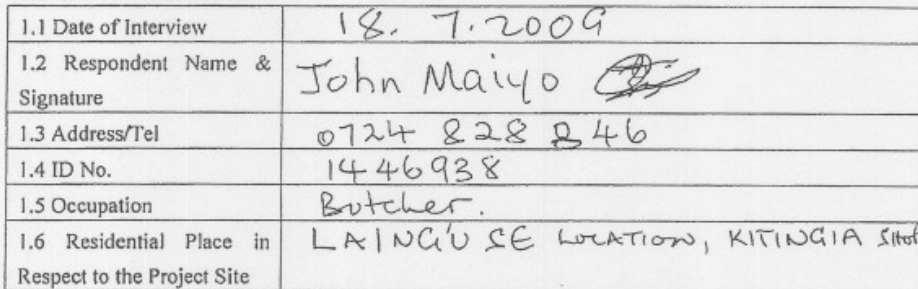 1.1 Date of Interview 18. 7.2009
1.2 Respondent Name & Signature John Maiyo
1.3 Address/Tel 0724 828 846
1.4 ID No. 1446938
1.5 Occupation Butcher.
1.6 Residential Place in Respect to the Project Site LAING'U SE LOCATION, KITINGIA